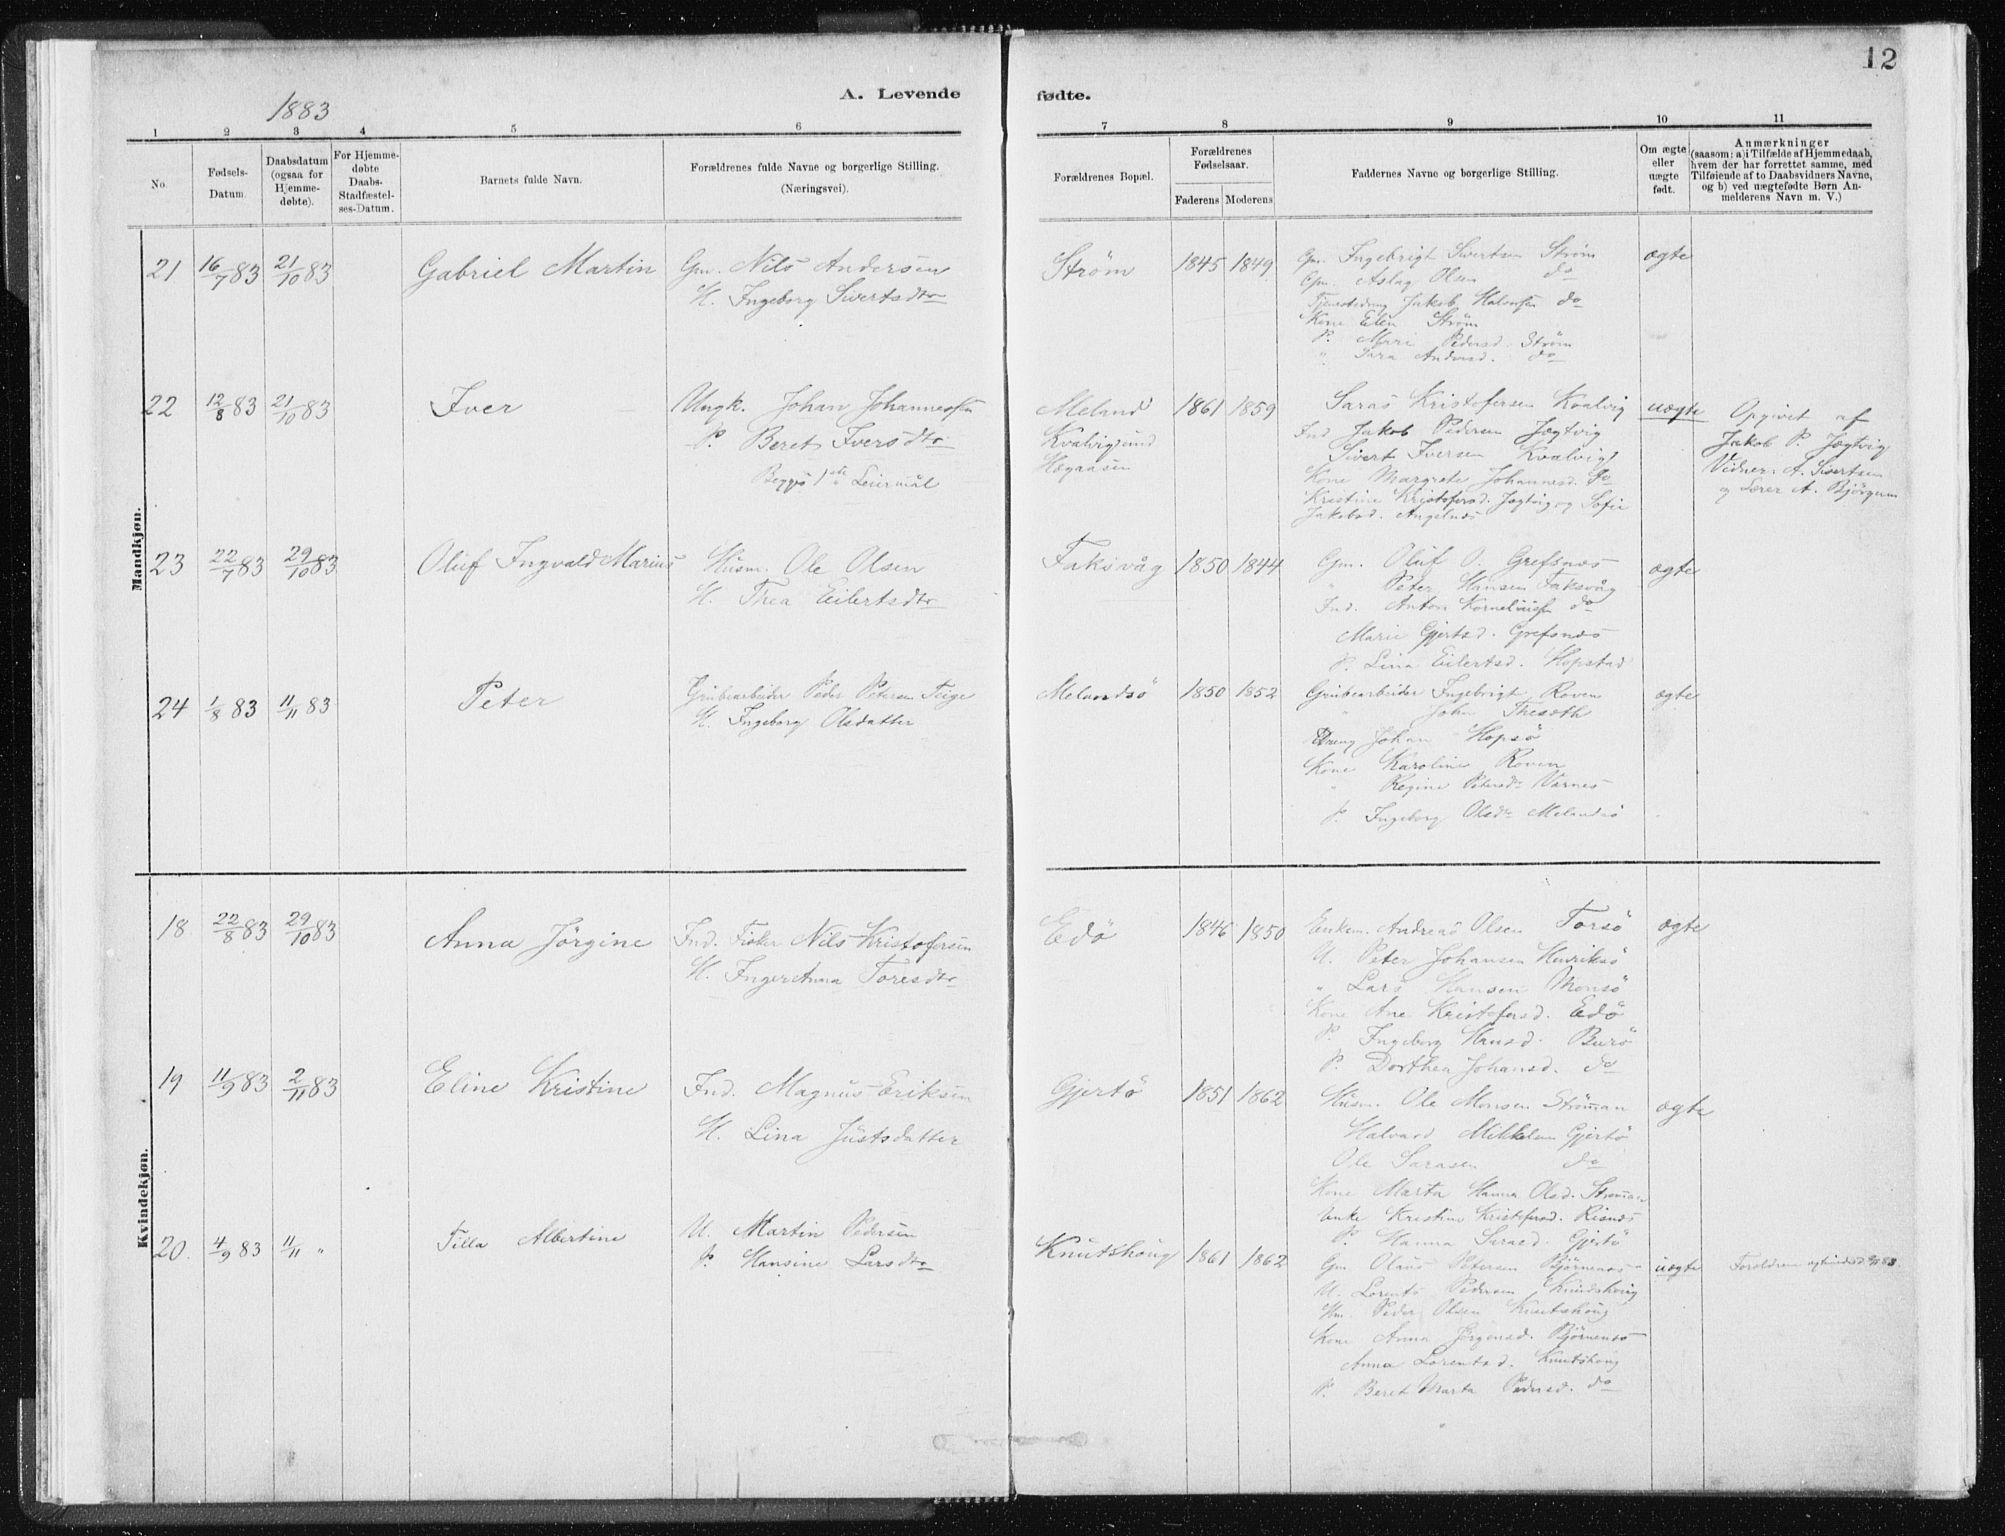 12
1883
A. Levende
fødte.
1 2 3 4 5 6
7 8 9 10 11
No.
Fødsels-
Datum.
Daabsdatum
(ogsaa for
Hjemme-
døbte).
For Hjemme-
døbte
Daabs-
Stadfæstel-
ses-Datum.
Barnets fulde Navn.
Forældrenes fulde Navne og borgerlige Stilling.
(Næringsvei).
Forældrenes Bopæl.
Forældrenes
Fødselsaar.
Faderens Moderens
Faddernes Navne og borgerlige Stilling.
Om ægte
eller
uægte
født.
Anmærkninger
(saasom: a) i Tilfælde af Hjemmedaab,
hvem der har forrettet samme, med
Tilføiende af to Daabsvidners Navne,
og b) ved uægtefødte Børn An-
melderens Navn m. V.)
Mandkjøn.
21 16/7 83 21/10 83 Gabriel Martin
Gm. Nils Andersen
H. Ingeborg Sivertsdtr
Strøm 1845 1849
Gm. Ingebrigt Sivertsen Strøm
Gm. Aslag Olsen do
Tjenestedreng Jakob Halvorsen do
Kone Elen Strøm
P. Marie Pedersd. Strøm
" Sara Andersd. do
ægte
22 12/8 83 21/10 83 Iver
Ungk. Johan Johannessen
P. Beret Iversdtr
Begges 1ste Leiermål
Meland 1861 1859
Kvalvigsund
Hegaasen
Saras Kristofersen Kvalvig
Ind Jakob Pedersen Jægtvig
Sivert Iversen Kvalvig
Kone Margrete Johannesd. Do
Kristine Kristofersd. Jægtvig og Sofie
Jakobsd. Angelnes
uægte
Opgivet af
Jakob P. Jægtvig
Vidner: A. Sivertsen
og Lærer A. Bjørgum
23 22/7 83 29/10 83 Oluf Ingvald Marius
Husm. Ole Olsen
H. Thea Eilertsdtr
Faksvåg 1850 1844
Gm. Oluf O. Grefsnes
" Peter Hansen Faksvåg
Ind. Anton Korneliusen do
Marie Gjertsd. Grefsnes
P. Lina Eilertsd. Hopstad
ægte
24 1/8 83 11/11 83 Peter
Grubearbeider Peder Petersen Teige
H. Ingeborg Olsdatter
Melandsö 1850 1852
Grubearbeider Ingebrigt Roven
" John Thesøth
Dreng Johan Hopsö
Kone Karoline Roven
" Regine Petersdtr Varnes
P. Ingeborg Olsdtr Melandsö
ægte
Kvindekjøn.
18 22/8 83 29/10 83 Anna Jörgine
Ind. Fisker Nils Kristofersen
H. Inger Anna Toresdtr
Edö 1846 1850
Enkem. Andreas Olsen Torsö
U. Peter Johansen Henriksö
" Lars Hansen Monsö
Kone Ane Kristofersd. Edö
P. Ingeborg Hansd. Burö
P. Dorthea Johansd. do
ægte
19 11/9 83 2/11 83 Eline Kristine
Ind. Magnus Eriksen
H. Lina Justsdatter
Gjertö 1851 1862
Husm. Ole Monsen Ströman
Halvard Mikkelsen Gjertö
Ole Sarasen do
Kone Marta Hanna Olsd. Ströman
Enke Kristine Kristofersd. Risnes
P. Hanna Sarasd. Gjertö
ægte
20. 4/9 83 11/11 " Tilla Albertine
U. Martin Pedersen
P. Hansine Larsdtr
Knutshoug 1861 1862
Gm. Olaus Petersen Bjørnenes
U. Lorents Pedersen Knutshoug
Hm. Peder Olsen Knutshoug
Kone Anna Jörgensd. Bjørnenes
Anna Lorentsd. Knutshoug
P. Beret Marta Pedersd. do
uægte
Forældrene ægteviede